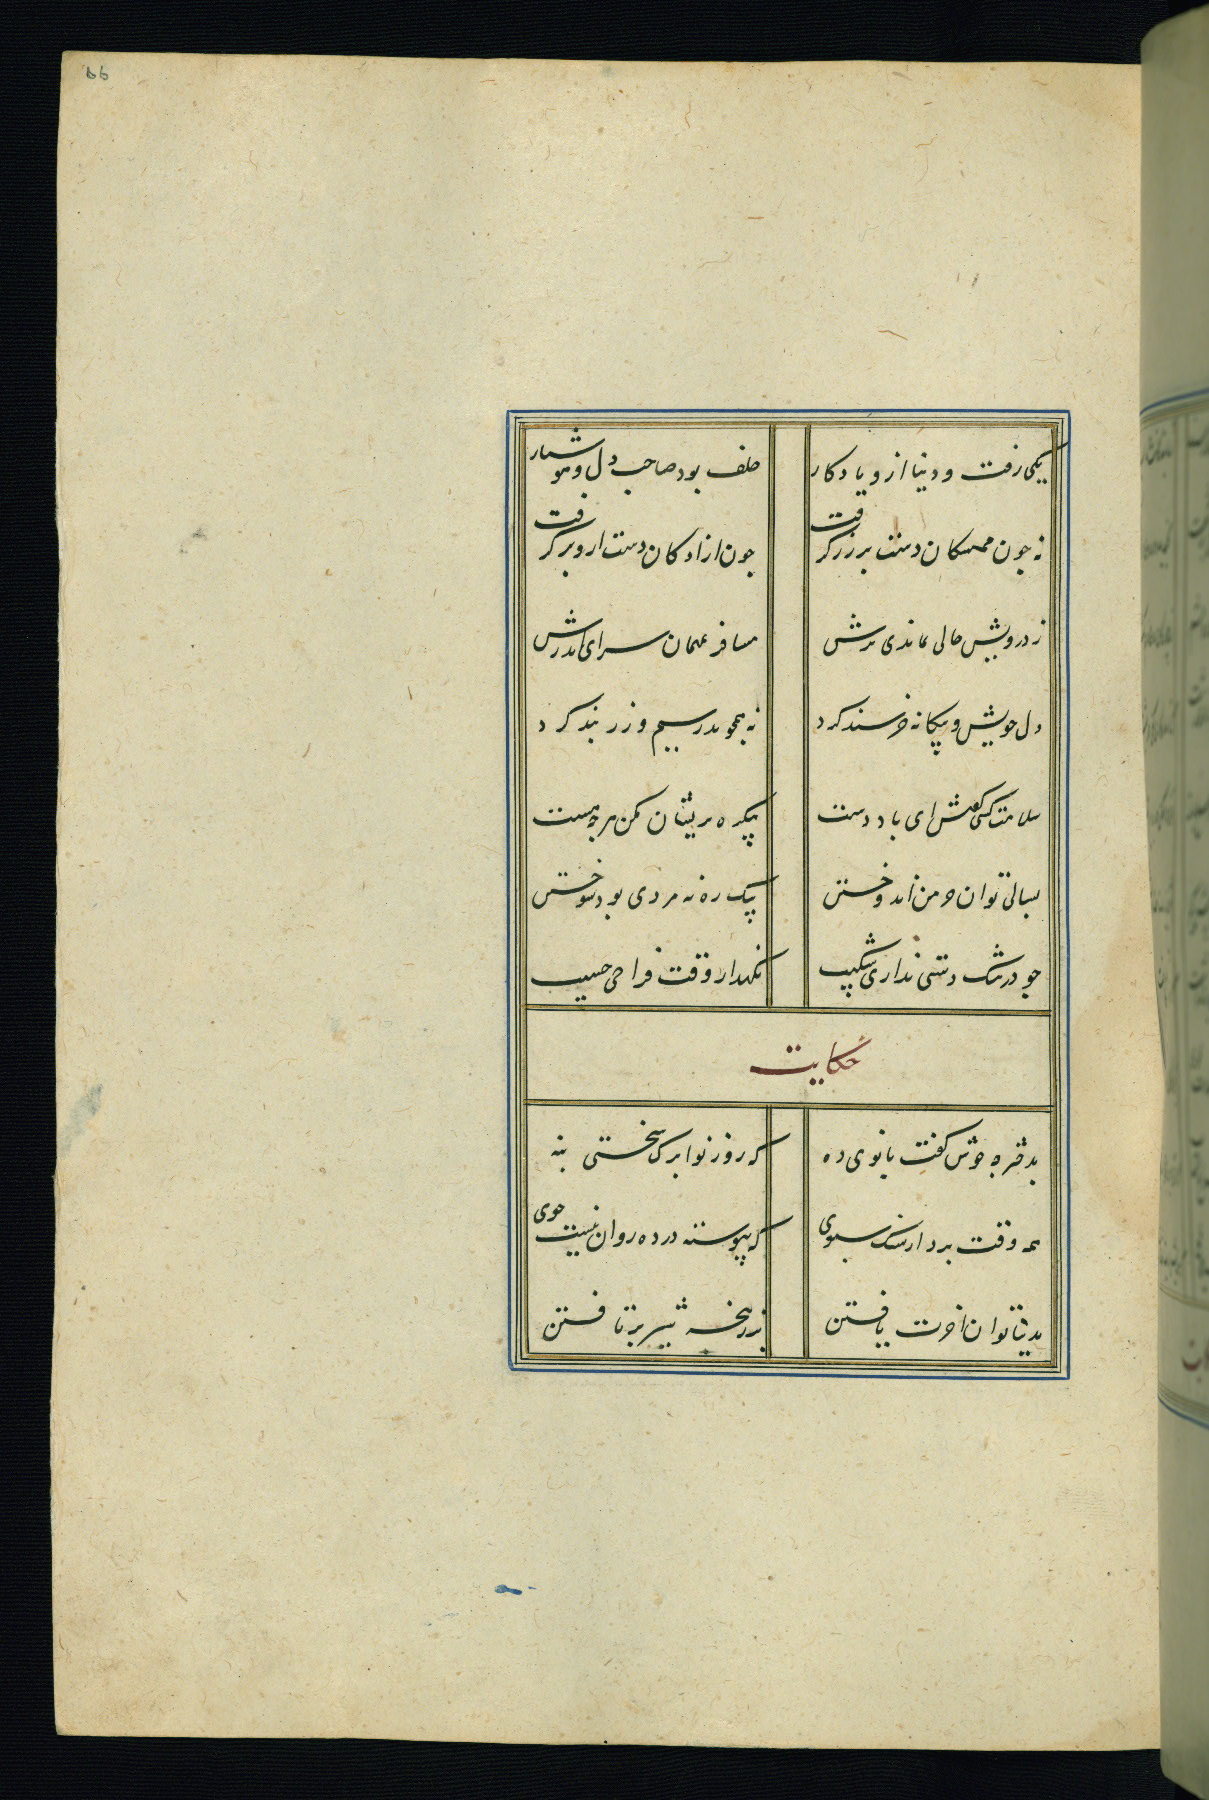 یکی رفت و دنیا ازو یادکار
خلف بود صاحب دل و هوشیار
نه چون ممسکان دست بر زر گرفت
چون ازادکان دست ازو بر گرفت
ز درویش خالی نماندی برش
مسافر بمهمان سرای اندرش
دل خویش و بیکانه خرسند کرد
نه همچو پدر سیم و زر بند کرد
ملامت کنی کفتش ای باد دست
بیکره پریشان مکن هر چه هست
بسالی توان خرمن اندوختن
بیک ره نه مردی بود سوختن
چو در تنک دستی نداری شکیب
نکهدار وقت فراخی حسیب
حکایت
بدختر چه خوش کفت بانوی ده
که روز نوا برک سختی بنه
همه وقت بردار مشک و سبوی
که پیوسته در ده روان نیست جوی
بدنیا توان اخرت یافتن
بزر پنجه شیر بر تافتن